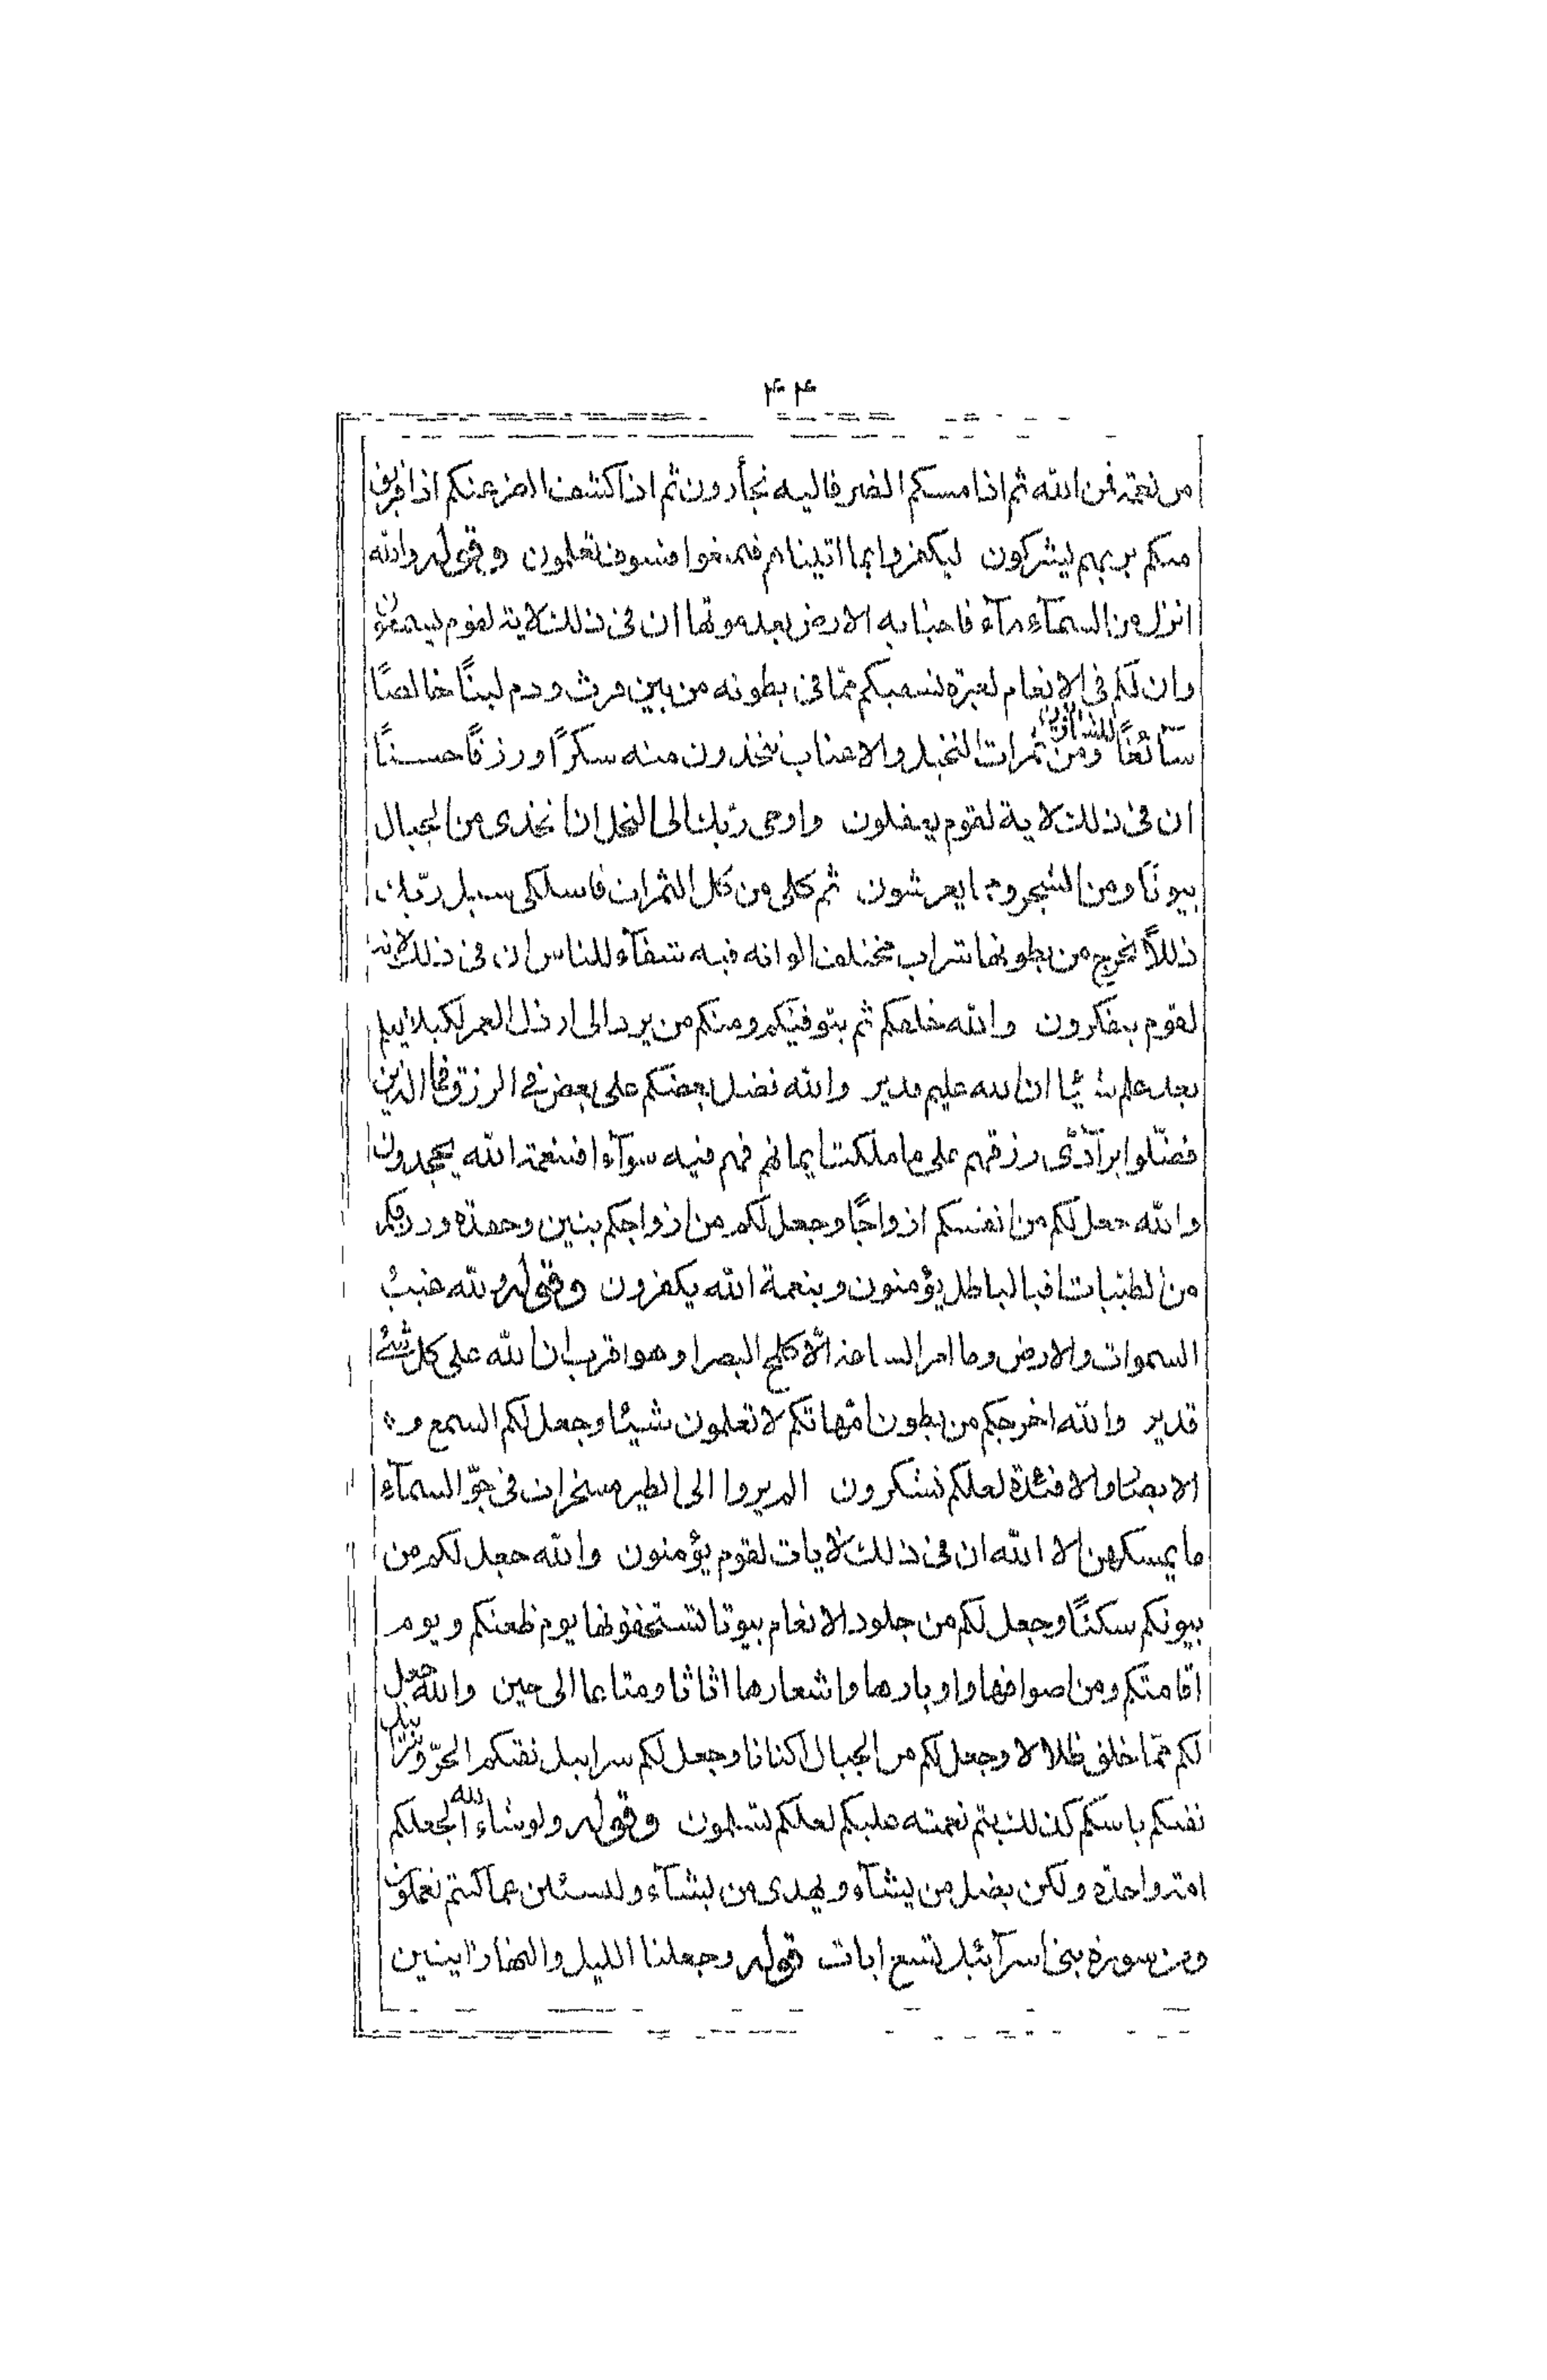 ۴۴
من نعمة فمن الله ثم اذا مسكم الضر فاليه تجأرون ثم اذا كشف الضر عنكم اذا فريق
منكم بربهم يشركون ليكفروا بما اتيناهم فتمتعوا فسوف تعلمون وقوله والله
انزل من السمآء مآء فاحيا به الارض بعد موتها ان فى ذلك لاية لقوم يسمعون
وان لكم فى الانعام لعبرة نسقيكم ممّا فى بطونه من بين فرث ودم لبنًا خالصًا
سآئغًا للشاربين ومن ثمرات النخيل والاعناب تتخذون منه سكرًا ورزقًا حسنًا
ان فى ذلك لاية لقوم يعقلون واوحى ربّك الى النحل ان اتخذى من الجبال
بيوتًا ومن الشجر ومما يعرشون ثم كلى من كل الثمرات فاسلكى سبل ربّك
ذللاً يخرج من بطونها شراب مختلف الوانه فيه شفآء للناس ان فى ذلك لاية
لقوم يتفكرون والله خلقكم ثم يتوفيكم ومنكم من يرد الى ارذل العمر لكيلا يعلم
بعد علم شيئا ان الله عليم قدير والله فضل بعضكم على بعض فى الرزق فما الذين
فضّلوا برآدّى رزقهم على ما ملكت ايمانهم فهم فيه سوآء افبنعمة الله يجحدون
والله جعل لكم من انفسكم ازواجًا وجعل لكم من ازواجكم بنين وحفدة ورزقكم
من الطيّبات افبالباطل يؤمنون وبنعمة الله يكفرون وقوله ولله غيب
السموات والارض وما امر الساعة الاّ كلمح البصر او هو اقرب ان الله على كل شئ
قدير والله اخرجكم من بطون امّهاتكم لا تعلمون شيئا وجعل لكم السمع و
الابصار والافئدة لعلكم تشكرون الم يروا الى الطير مسخرات فى جوّ السمآء
ما يمسكهن الا الله ان فى ذلك لايات لقوم يؤمنون والله جعل لكم من
بيوتكم سكنًا وجعل لكم من جلود الانعام بيوتا تستخفونها يوم ظعنكم ويوم
اقامتكم ومن اصوافها واوبارها واشعارها اثاثا ومتاعا الى حين والله جعل
لكم ممّا خلق ظلالا وجعل لكم من الجبال اكنانا وجعل لكم سرابيل تقيكم الحرّ وسرابيل
تقيكم باسكم كذلك يتم نعمته عليكم لعلكم تسلمون وقوله ولو شاء الله لجعلكم
امة واحدة ولكن يضل من يشآء ويهدى من يشآء ولتسئلن عما كنتم تعملون
ومن سورة بنى اسرآئيل تسع ايات قوله وجعلنا الليل والنهار ايتين